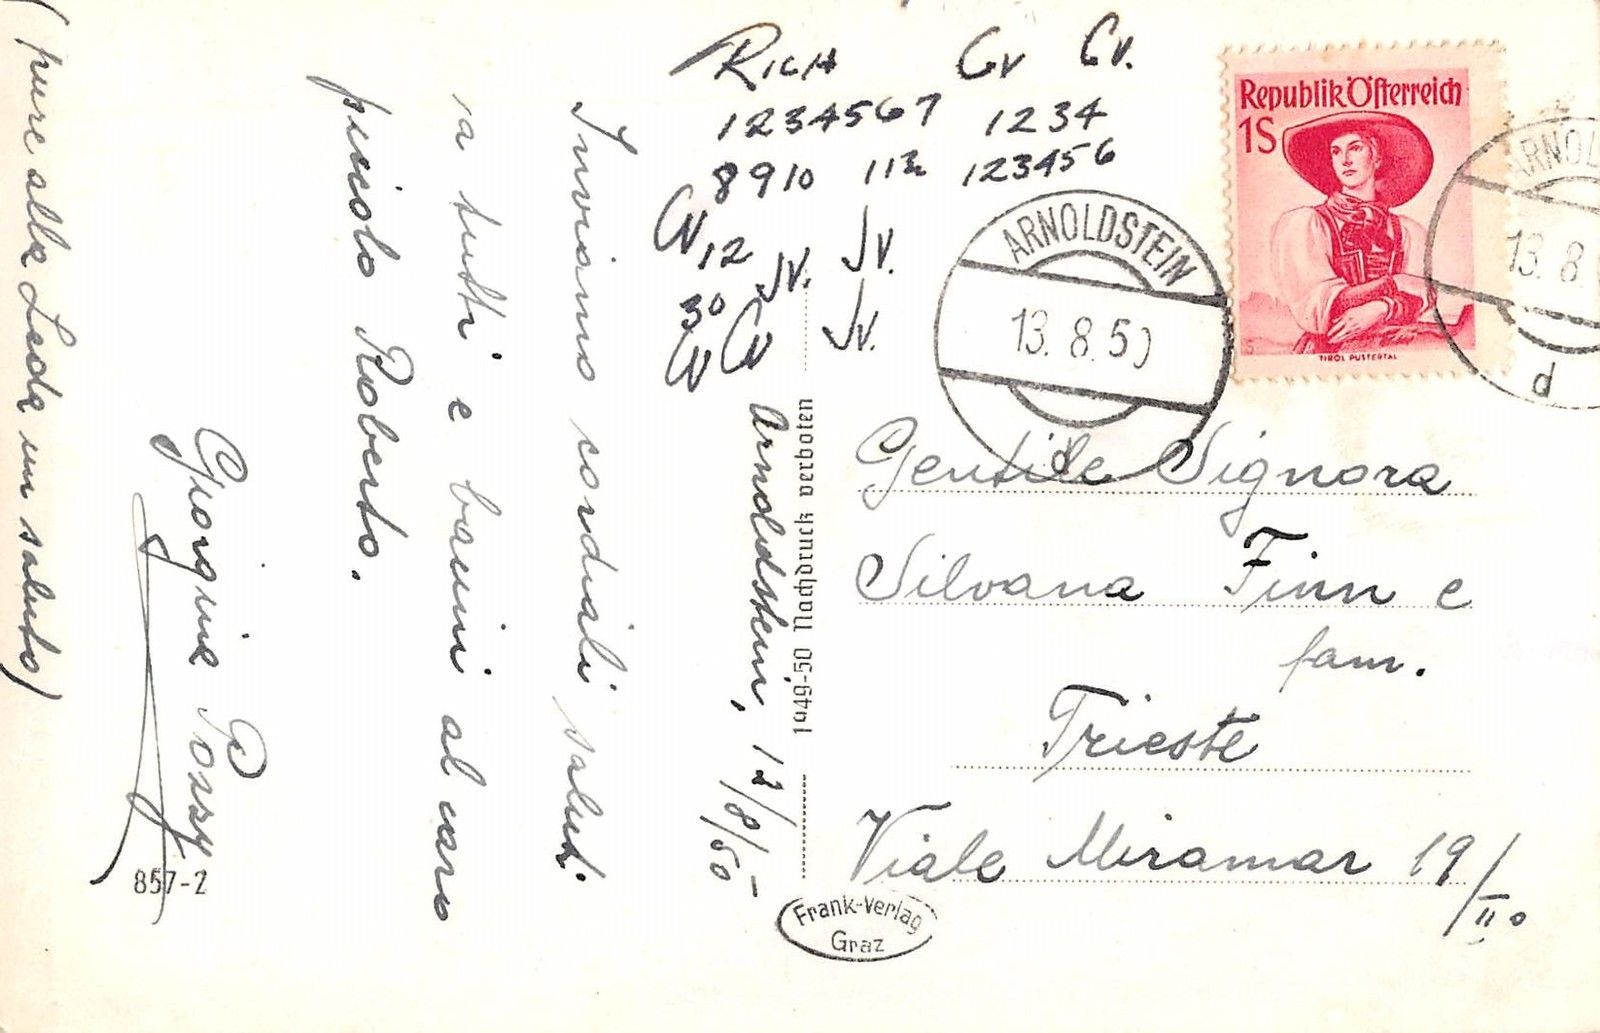 Rich Cv Cv.
1234567 1234
8910 112 123456
Cv 12 Jv. Jv.
30 Cv Cv Jv.
Republik Österreich
1S
TIROL PUSTERTAL
ARNOLDSTEIN
13. 8. 50
d
ARNOL
13. 8.
d
Arnoldstein, 13/8/50-
Inviamo cordiali salut.
sa tutti e bacini al caro
piccolo Roberto.
Giorgina Possy
(pure alla Leda un saluto)
857-2
1949-50 Nachdruck verboten
Frank-Verlag
Graz
Gentile Signora
Silvana Finn e
fam.
Trieste
Viale Miramar 19/II°